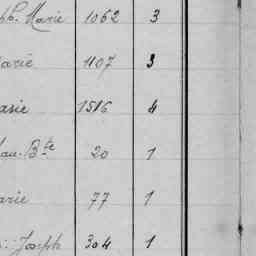 ph. Marie 1062 3
arie 1107 3
arie 1516 4
Bte 20 1
arie 77 1
Joseph 304 1